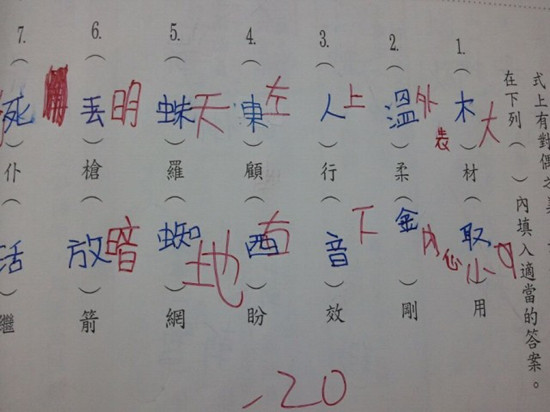 式上有對偶之美
在下列（ ）內填入適當的答案。
大小
1.（木）材（取）用
外表內心
2.（溫）柔（金）剛
上下
3.（人）行（音）效
左右
4.（東）顧（西）盼
天地
5.（蛛）羅（蜘）網
明暗
6.（丟）槍（放）箭
7.（死）仆（活）繼
-20